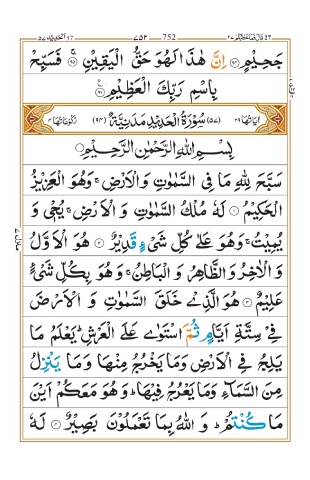 قال فما خطبكم ٢٧ ٧٥٢ 752 الحديد ٥٧
جَحِيْمٍ ﴿٩٤﴾ اِنَّ هٰذَا لَهُوَ حَقُّ الْيَقِيْنِ ﴿٩٥﴾ فَسَبِّحْ
بِاسْمِ رَبِّكَ الْعَظِيْمِ ﴿٩٦﴾
اٰيَاتُهَا ٢٩ (٥٧) سُوْرَةُ الْحَدِيْدِ مَدَنِيَّةٌ (٩٤) رُكُوْعَاتُهَا ٤
بِسْمِ اللّٰهِ الرَّحْمٰنِ الرَّحِيْمِ
سَبَّحَ لِلّٰهِ مَا فِى السَّمٰوٰتِ وَالْاَرْضِ ۚ وَهُوَ الْعَزِيْزُ
الْحَكِيْمُ ﴿١﴾ لَهٗ مُلْكُ السَّمٰوٰتِ وَ الْاَرْضِ ۚ يُحْىٖ وَ
يُمِيْتُ ۚ وَهُوَ عَلٰى كُلِّ شَىْءٍ قَدِيْرٌ ﴿٢﴾ هُوَ الْاَوَّلُ
وَ الْاٰخِرُ وَالظَّاهِرُ وَ الْبَاطِنُ ۚ وَ هُوَ بِكُلِّ شَىْءٍ
عَلِيْمٌ ﴿٣﴾ هُوَ الَّذِىْ خَلَقَ السَّمٰوٰتِ وَ الْاَرْضَ
فِىْ سِتَّةِ اَيَّامٍ ثُمَّ اسْتَوٰى عَلَى الْعَرْشِ ؕ يَعْلَمُ مَا
يَلِجُ فِى الْاَرْضِ وَمَا يَخْرُجُ مِنْهَا وَمَا يَنْزِلُ
مِنَ السَّمَآءِ وَمَا يَعْرُجُ فِيْهَا ؕ وَ هُوَ مَعَكُمْ اَيْنَ
مَا كُنْتُمْ ؕ وَ اللّٰهُ بِمَا تَعْمَلُوْنَ بَصِيْرٌ ﴿٤﴾ لَهٗ